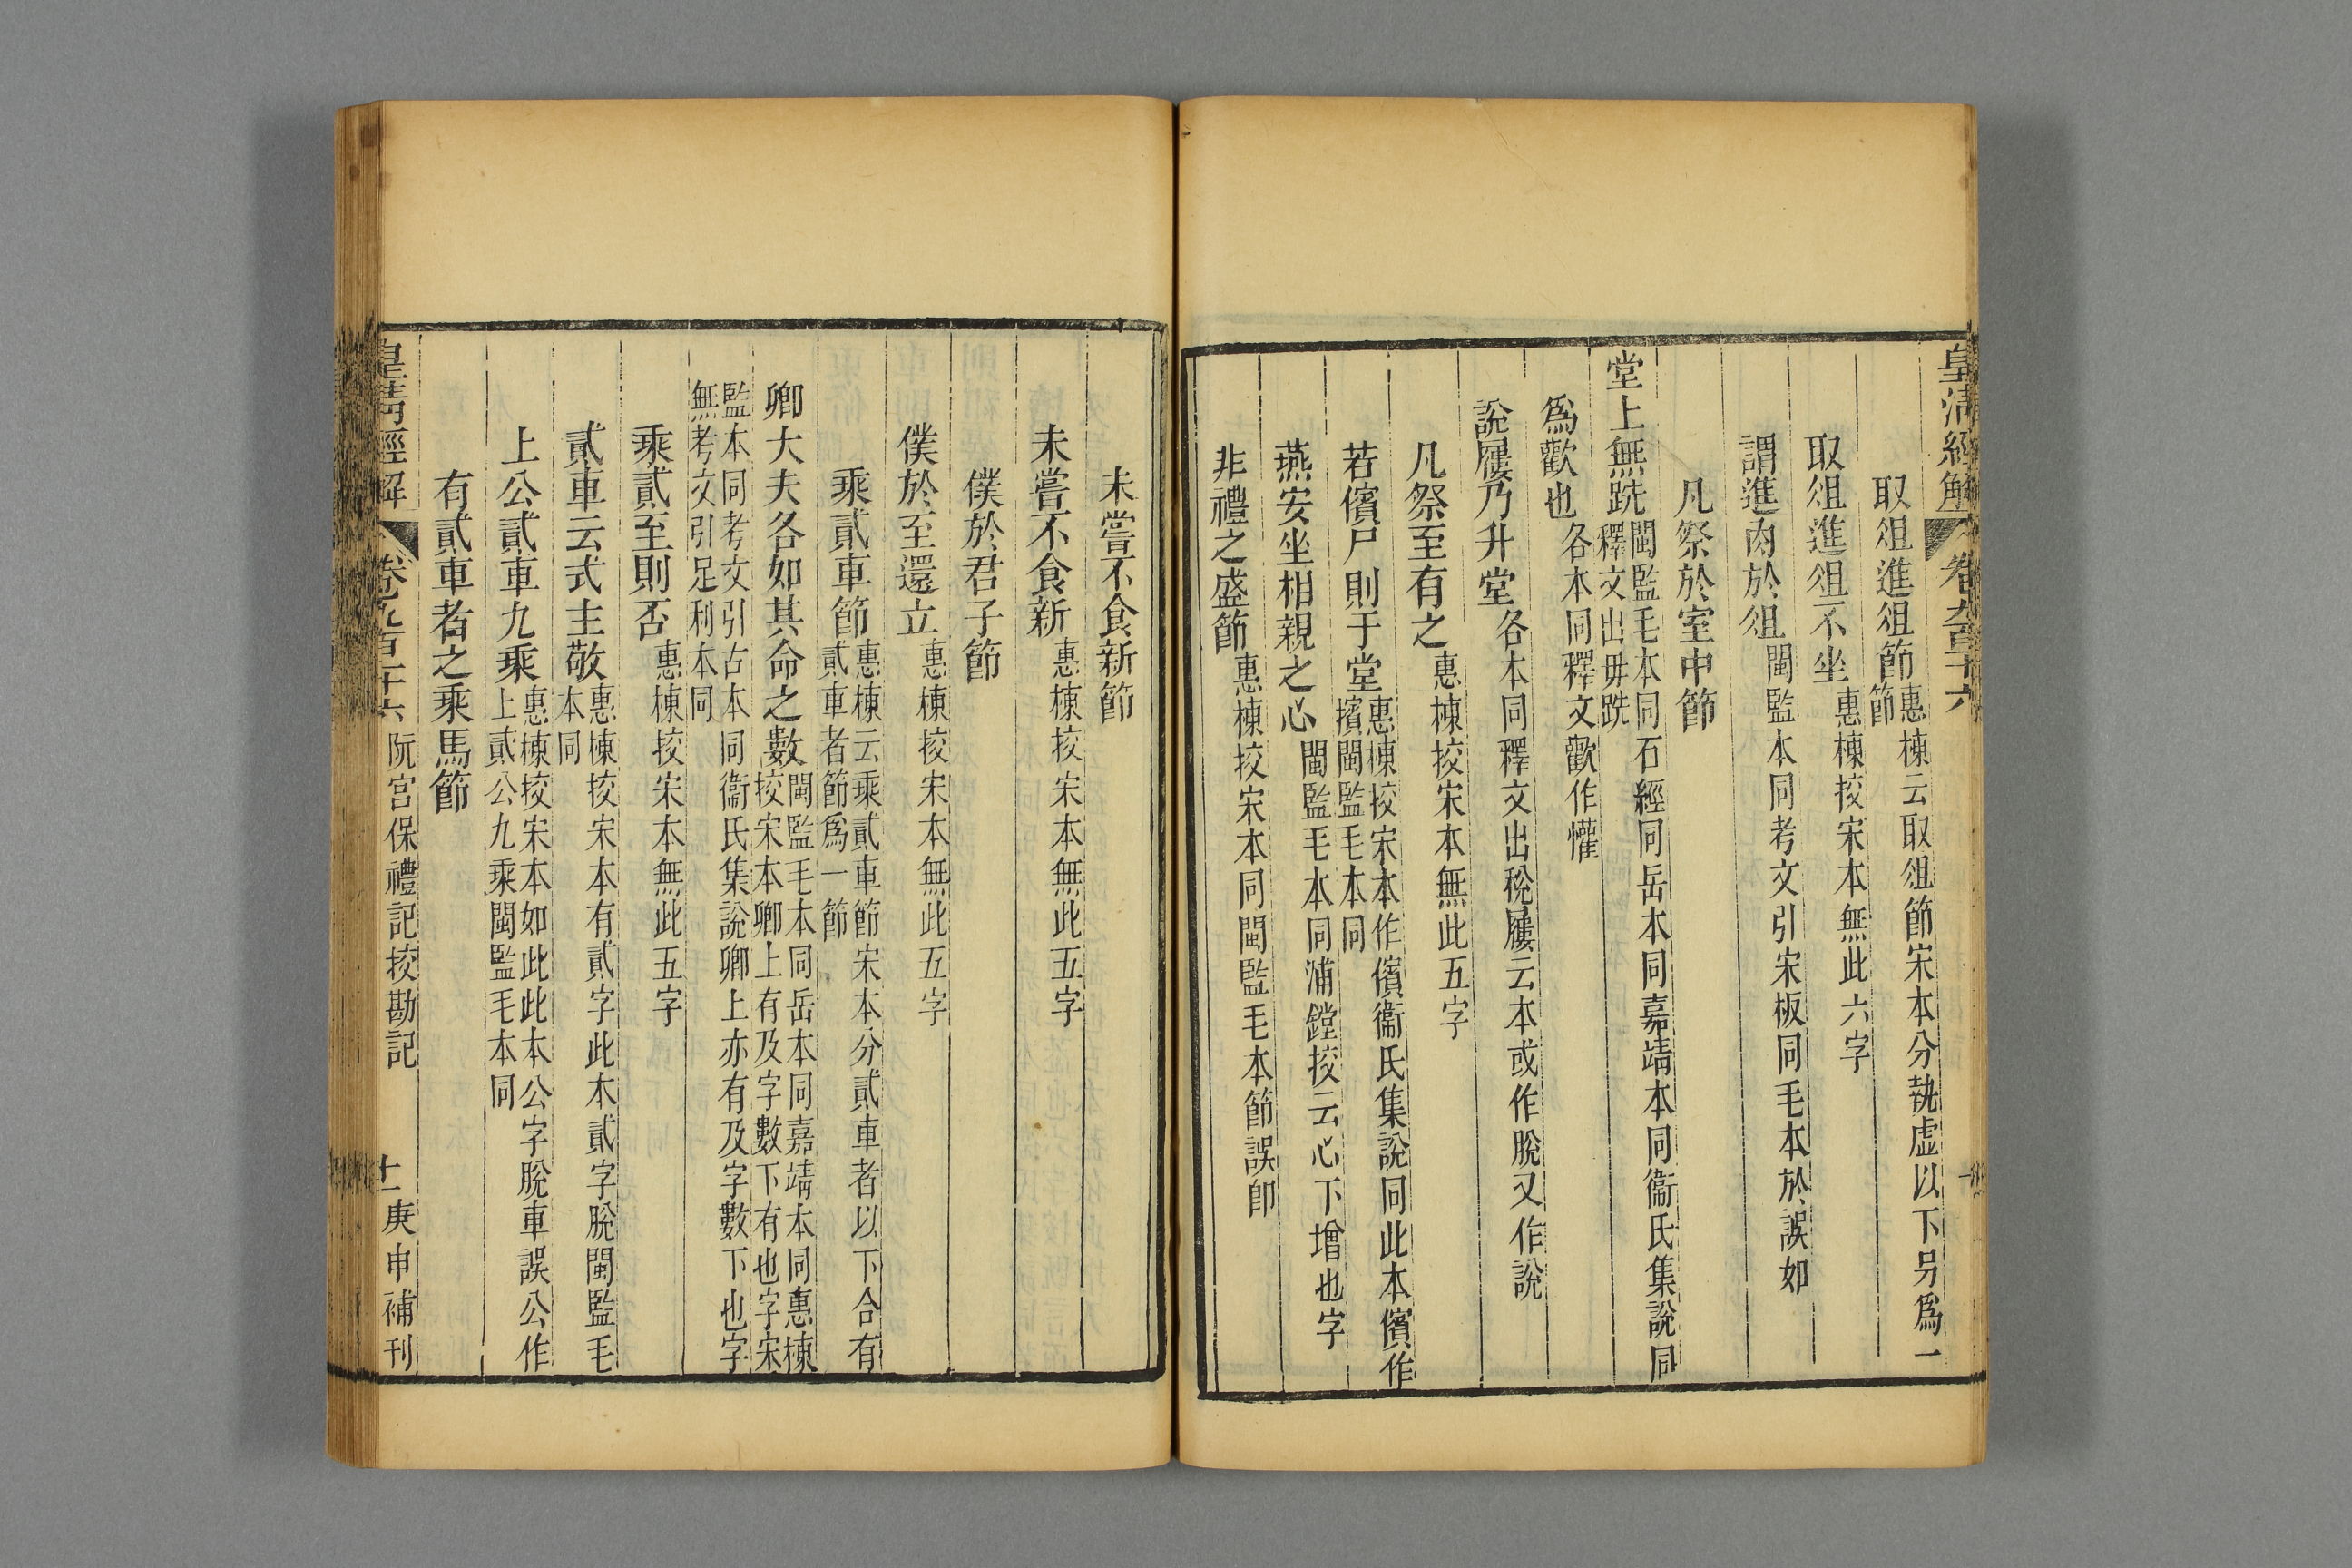 皇清經解 卷九百十六
取俎進俎節惠棟云取俎節宋本分執虛以下另爲一
節
取俎進俎不坐惠棟挍宋本無此六字
謂進肉於俎閩監本同考文引宋板同毛本於誤如
凡祭於室中節
堂上無跣閩監毛本同石經同岳本同嘉靖本同衞氏集說同
釋文出毋跣
爲歡也各本同釋文歡作懽
說屨乃升堂各本同釋文出稅屨云本或作脫又作說
凡祭至有之惠棟挍宋本無此五字
若儐尸則于堂惠棟挍宋本作儐衞氏集說同此本儐作
擯閩監毛本同
燕安坐相親之心閩監毛本同浦鏜挍云心下增也字
非禮之盛節惠棟挍宋本同閩監毛本節誤卽
未嘗不食新節
未嘗不食新惠棟挍宋本無此五字
僕於君子節
僕於至還立惠棟挍宋本無此五字
乘貳車節惠棟云乘貳車節宋本分貳車者以下合有
貳車者節爲一節
卿大夫各如其命之數閩監毛本同岳本同嘉靖本同惠棟
挍宋本卿上有及字數下有也字宋
監本同考文引古本同衞氏集說卿上亦有及字數下也字
無考文引足利本同
乘貳至則否惠棟挍宋本無此五字
貳車云式主敬惠棟挍宋本有貳字此本貳字脫閩監毛
本同
上公貳車九乘惠棟挍宋本如此此本公字脫車誤公作
上貳公九乘閩監毛本同
有貳車者之乘馬節
皇淸經解 卷九百十六 阮宮保禮記挍勘記 十一 庚申補刊